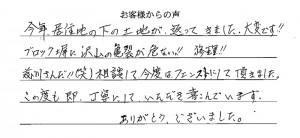 お客様からの声
今年居住地の下の土地が、返って きました、大変です!!
ブロック塀に沢山の亀裂が危ない!! 修理!!
さんだ!!(笑)相談して今度はフェンスにして頂きました。
この度も即、丁寧にして いただき喜んでいます。
ありがとうございました。